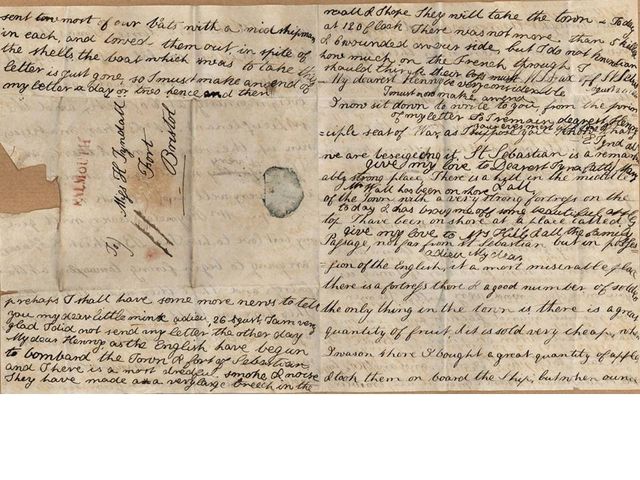 sent two most of our boats with a midshipman
in each, and towed them out, in spite of
the shells, the boat which was to take this
letter is just gone, so I must make an end of
my letter a day or two's hence and then
FALMOUTH
To
Miss H Tyndall
Fort
Bristol
perhaps I shall have some more news to tell
you my dear little mink adieu, 26 August, I am very
glad I did not send my letter the other day
My dear Henny as the English have begun
to bombard the Town & fort of Sebastian
and There is a most dreadful smoke & noise
They have made a very large breech in the
wall & I hope They will take the town - To day
at 12 O Clock There was not more than 5 killed
& 6 wounded on our side, but I do not
how much on the French though I
should think their loss must
My dear Henny very considerable
I must now make an end
I now sit down to write to you, from the prin
of my letter & remain dearest Hen
=ciple seat of War, as I suppose you
your ever most
we are besiegeing it, St Sebastian is a remark
give my love to Dearest
ably strong place There is a hill in the middle
& all
Mr Wall has been on shore
of the Town with a very strong fortress on the
to day & has brought off some beautiful
top I have been on shore at a place called
give my love to Mrs Hill & all the family
Passage, not far from St Sebastian but in posses
adieu My dear
=sion of the English, it a most miserable place
there is a fortress there & a good number of soldi
the only thing in the town is there is a great
quantity of fruit & it is sold very cheap, wh
I was on shore I bought a great quantity of apple
& took them on board the Ship, but when our